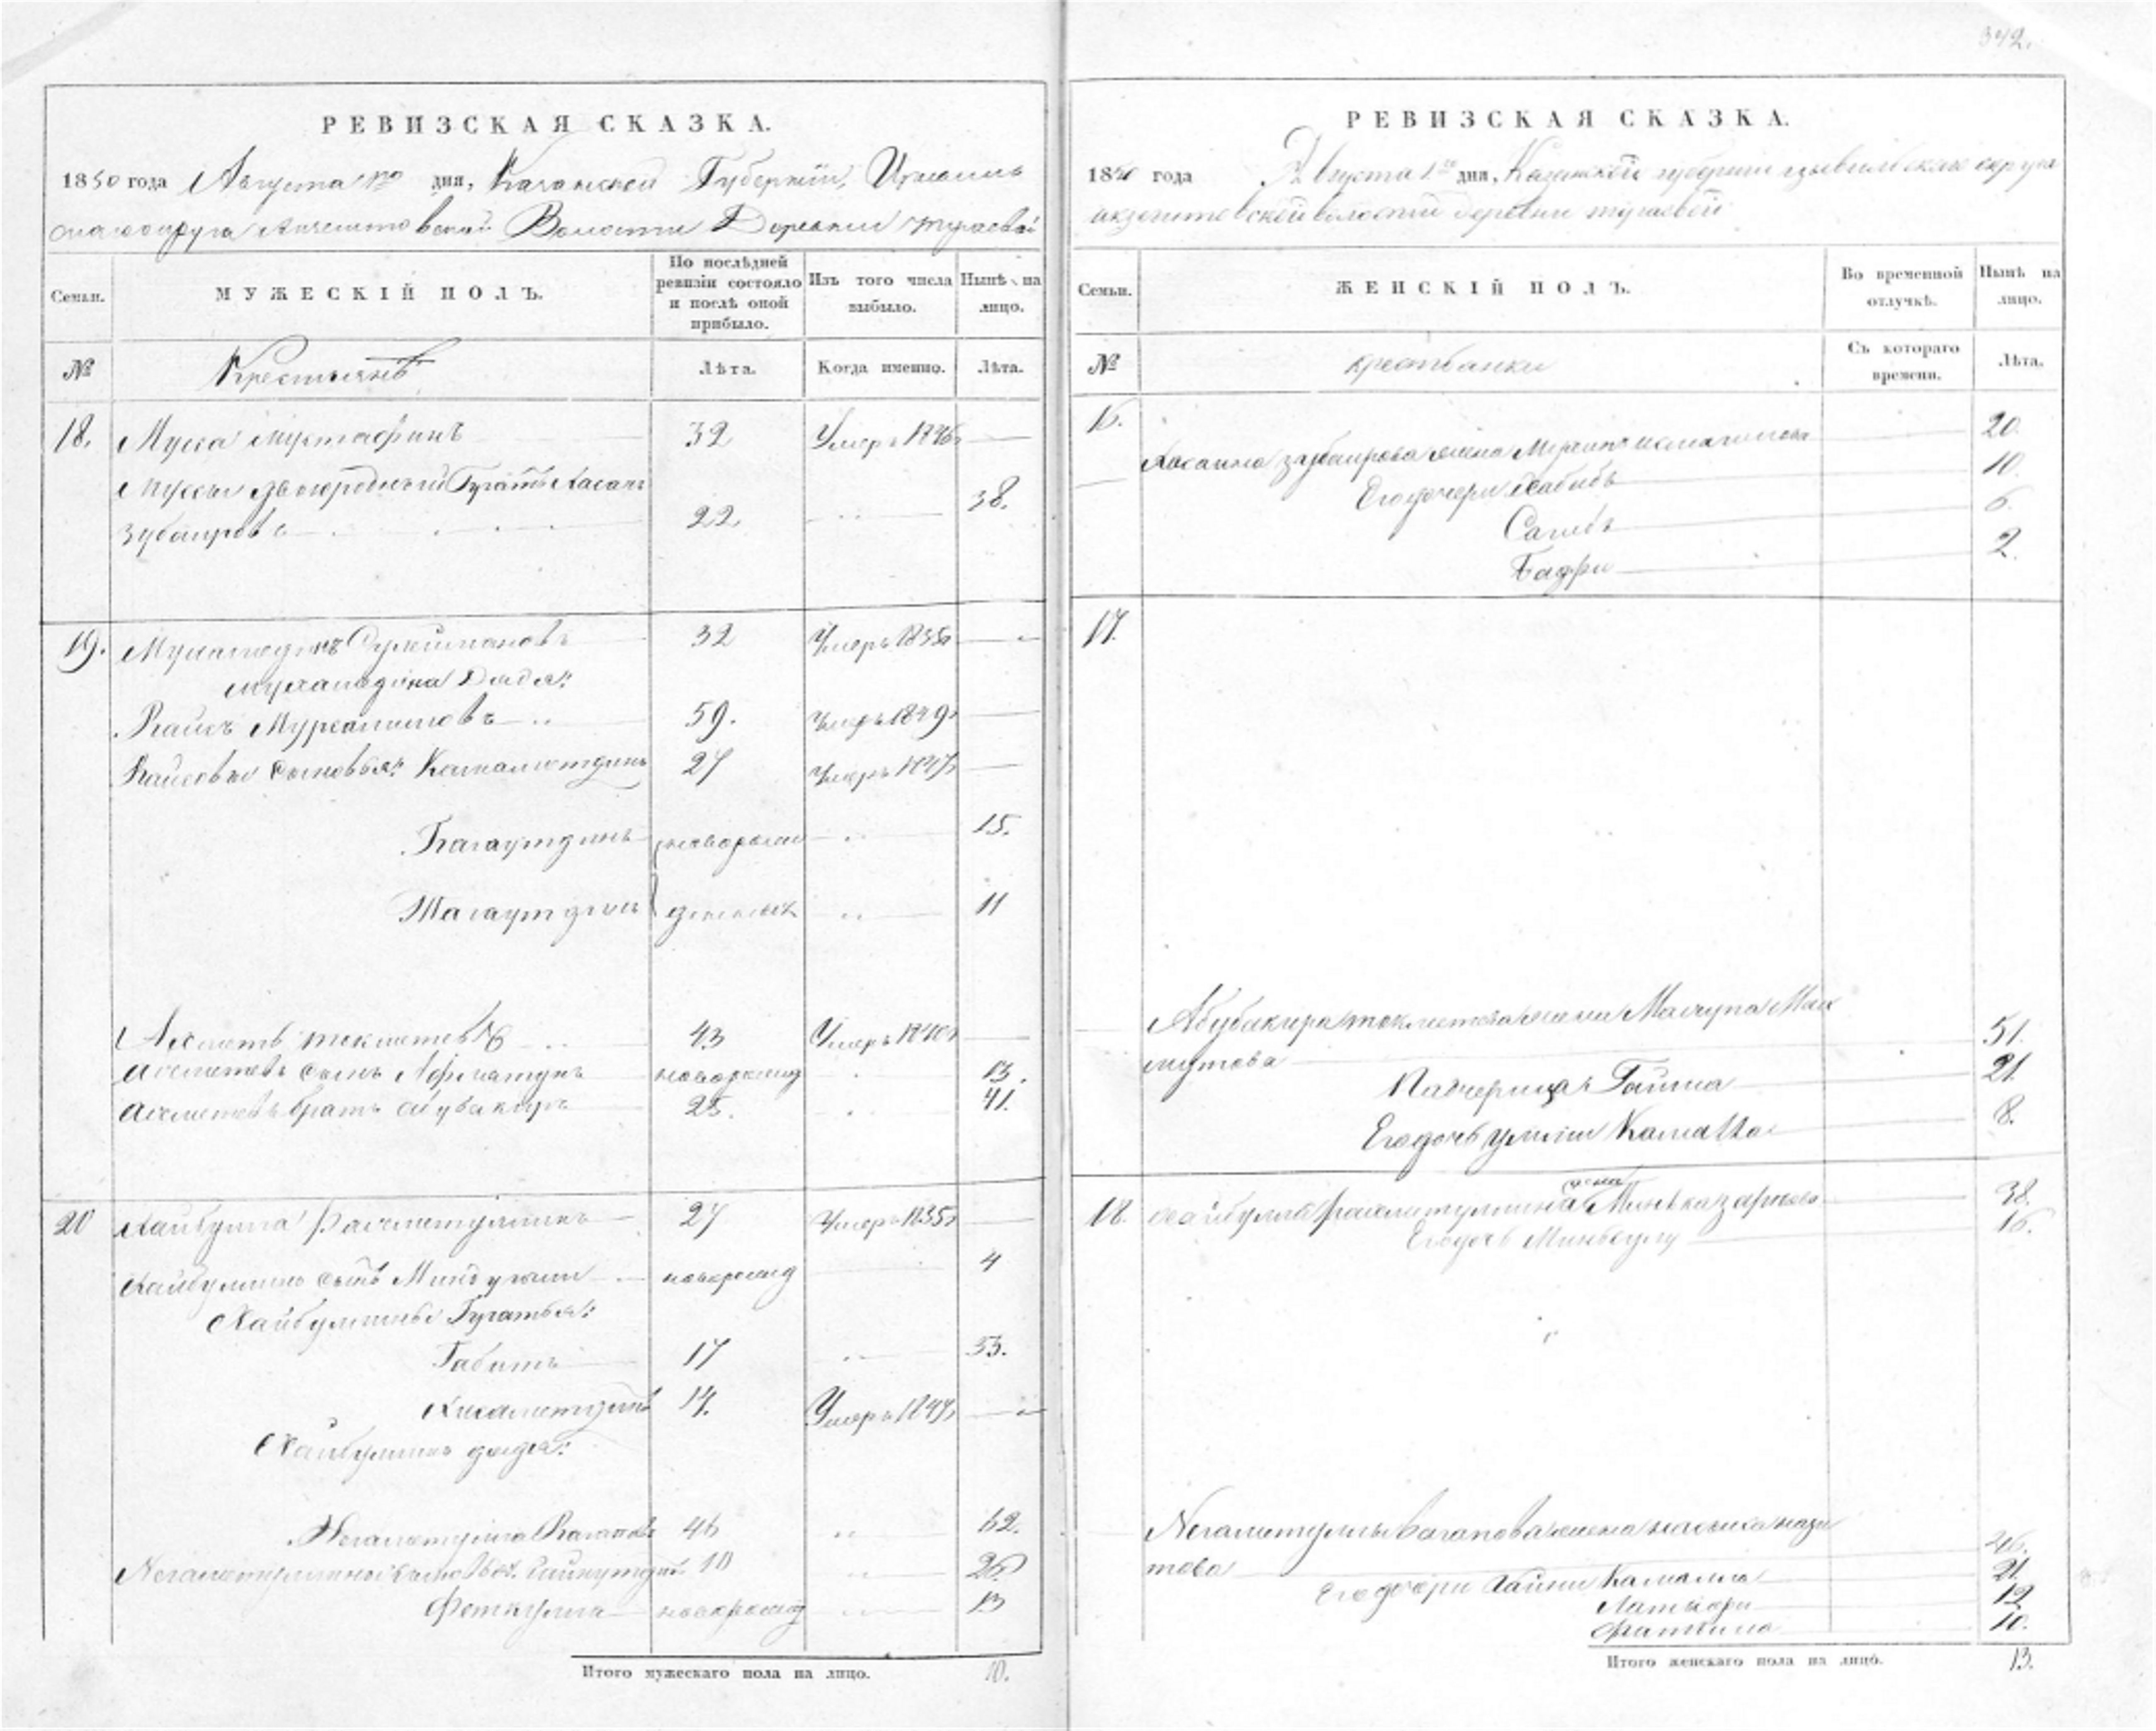 342.
РЕВИЗСКАЯ СКАЗКА.
1850 года Августа 1го дня, Казанской Губерніи, Цивиль
скаго округа Акзегитовской Волости Деревни Тугаевой
Семьи.
МУЖЕСКІЙ ПОЛЪ.
По послѣдней ревизіи состояло и послѣ оной прибыло.
Изъ того числа выбыло.
Нынѣ на лицо.
№
Крестьянъ
Лѣта.
Когда именно.
Лѣта.
18. Мусса Мустафинъ 32 Умеръ 1846
Муссы двоюродный братъ Хасанъ
Зубаировъ 22 38.
19. Мухамединъ Сулеймановъ 32 Умеръ 1835
Мухамедина Дядя:
Раисъ Мурсалимовъ 59. Умеръ 1849
Раисовы сыновья: Камалетдинъ 27 Умеръ
Багаутдинъ новорож 15.
Шагаутдинъ денныхъ 11
Ахметъ Токметевъ 43 Умеръ 1840
Ахметевъ сынъ новорожд 13.
Ахметевъ братъ Абубакиръ 25. 41.
20 Хайбулла Рахметуллинъ 27 Умеръ 1835
Хайбуллинъ сынъ новорожд 4
Хайбуллины братья:
Габитъ 17 33.
14. Умеръ 1847
Хайбуллинъ дядя:
Негаметулла Вагаповъ 46 62.
Негаметуллины сыновья: 10 26
Феткулла новорожд 13
Итого мужескаго пола на лицо. 10.
РЕВИЗСКАЯ СКАЗКА.
1850 года Августа 1го дня, Казанской губерніи цывильскаго округа
акзегитовской волости деревни тугаевой
Семьи.
ЖЕНСКІЙ ПОЛЪ.
Во временной отлучкѣ.
Нынѣ на лицо.
№
крестьянки
Съ котораго времени.
Лѣта.
16.
Хасана Зубаирова жена 20.
Его дочери Хабибъ 10.
Сагибъ 6.
Бадри 2.
17.
Абубакира токметева жена Магрупа Мах
мутова 51.
Падчерица Гайша 21.
Его дочь Камал 8.
18. Хайбуллы Рахматуллина жена 38.
Его дочь Минбану 16.
Негаметуллы Вагапова жена
това 46.
Его дочери Камалла 21.
12
10.
Итого женскаго пола на лицо. 13.